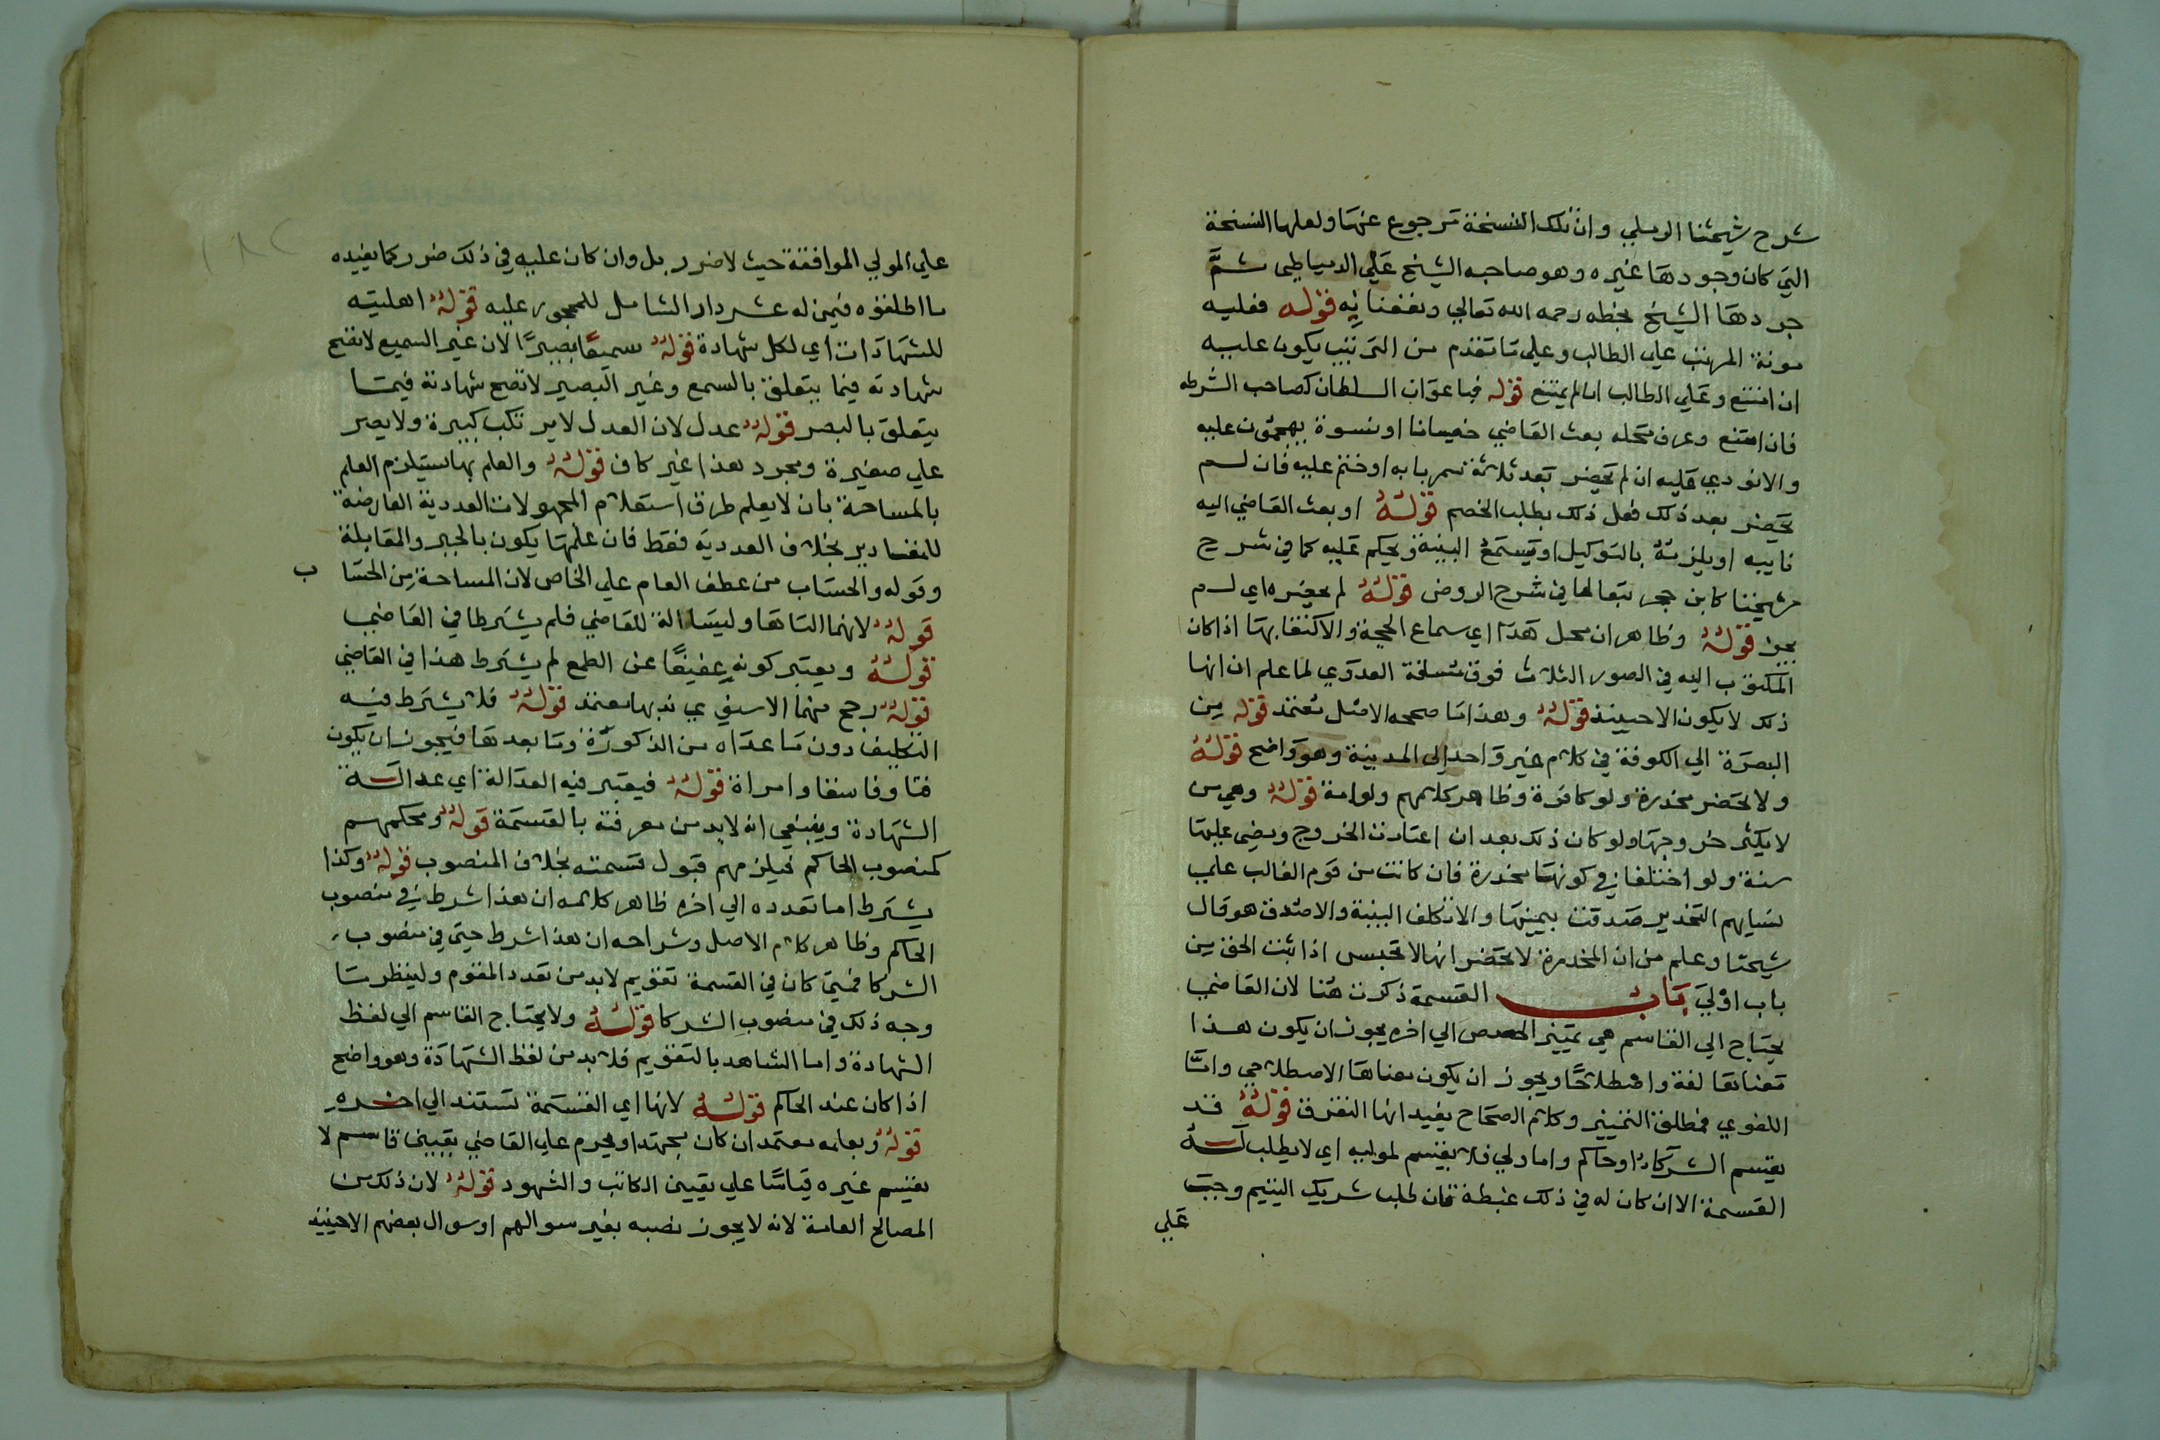 شرح شيخنا الرملي وان تلك النسخة مرجوع عنها ولعلها النسخة
التي كان وجودها غيره وهو صاحبه الشيخ علي الدمياطي ثم
جردها الشيخ بخطه رحمه الله تعالي ونفعنا به قوله فعليه
مونة المرتب علي الطالب وعلي ما تقدم من الترتيب يكون عليه
ان امتنع وعلي الطالب ان لم يمتنع قوله فباعوان السلطان كصاحب الشرطه
فان امتنع وعرف محله بعث القاضي خصيانا او نسوة يهجمون عليه
والا نودي عليه ان لم يحضر بعد ثلاثة سمر بابه او ختم عليه فان لم
يحضر بعد ذلك فعل ذلك بطلب الخصم قوله او بعث القاضي اليه
نايبه او يلزمه بالتوكيل او يستمع البينة ويحكم عليه كما في شرح
شيخنا كابن حجر تبعا لما في شرح الروض قوله لم يحضره اي لم
يجز قوله وظاهر ان محل هذا اي سماع الحجة والاكتفا بها اذا كان
المكتوب اليه في الصور الثلاث فوق مسافة العدوي لما علم ان انها
ذلك لا يكون الا حينيذ قوله وهذا ما صححه الاصل معتمد قوله من
البصرة الي الكوفة في كلام غير واحد الى المدينة وهو واضح قوله
ولا تحضر مخدرة ولو كافرة وظاهر كلامهم ولو امة قوله وهي من
لا يكثر خروجها ولو كان ذلك بعد ان اعتادت الخروج ومضي عليها
سنة ولو اختلفا في كونها مخدرة فان كانت من قوم الغالب علي
نسايهم التخدير صدقت بيمينها والا تكلف البينة والا صدق هو وقال
شيخنا وعلم من ان المخدرة لا تحضر انها لا تحبس اذا ثبت الحق من
باب اولي باب القسمة ذكرت هنا لان القاضي
يحتاج الي القاسم هي تمييز الحصص الي اخره يجوز ان يكون هذا
معناها لغة واصطلاحا ويجوز ان يكون معناها الاصطلاحي واما
اللغوي فمطلق التمييز وكلام الصحاح يفيد انها التفرق قوله قد
يقسم الشركاء او حاكم واما ولي فلا يقسم لموليه اي لا يطلب له
القسمة الا ان كان له في ذلك غبطة فان طلب شريك اليتيم وجب
علي
علي المولي الموافقة حيث لا ضرر بل وان كان عليه في ذلك ضرر كما يفيده
ما اطلقوه فيمن له عشر دار الشامل للمحجور عليه قوله اهليته
للشهادات اي لكل شهادة قوله سميعا بصيرا لان غير السميع لا تصح
شهادته فيما يتعلق بالسمع وغير البصير لا تصح شهادته فيما
يتعلق بالبصر قوله عدل لان العدل لا يرتكب كبيرة ولا يصر
علي صغيرة ومجرد هذا غير كاف قوله والعلم بها يستلزم العلم
بالمساحة بان لا يعلم طرق استعلام المجهولات العددية العارضة
للمقادير بخلاف العددية فقط فان علمها يكون بالجبر والمقابلة
وقوله والحساب من عطف العام علي الخاص لان المساحة من الحسا ب
قوله لانهما التاها وليسا الة للقاضي فلم يشترطا في القاضي
قوله ويعتبر كونه عفيفا عن الطمع لم يشترط هذا في القاضي
قوله رجح منهما الاسنوي ندبها معتمد قوله فلا يشترط فيه
التكليف دون ما عداه من الذكورة وما بعدها فيجوز ان يكون
قنا وفاسقا وامراة قوله فيعتبر فيه العدالة اي عدالة
الشهادة وينبغي انه لا بد من معرفته بالقسمة قوله ومحكمهم
كمنصوب الحاكم فيلزمهم قبول قسمته بخلاف المنصوب قوله وكذا
يشترط اما تعدده الي اخره ظاهر كلامه ان هذا شرط في منصوب
الحاكم وظاهر كلام الاصل وشراحه ان هذا شرط حتي في منصوب
الشركا فمتي كان في القسمة تقويم لا بد من تعدد المقوم ولينظر ما
وجه ذلك في منصوب الشركا قوله ولا يحتاج القاسم الي لفظ
الشهادة واما الشاهد بالتقويم فلا بد من لفظ الشهادة وهو واضح
اذا كان عند الحاكم قوله لانها اي القسمة تستند الي اخره
قوله وبعلمه معتمد ان كان مجتهدا ويحرم علي القاضي تعيين قاسم لا
يقسم غيره قياسا علي تعيين الكاتب والشهود قوله لان ذلك من
المصالح العامة لانه لا يجوز نصبه بغير سوالهم او سوال بعضهم الا حينيذ